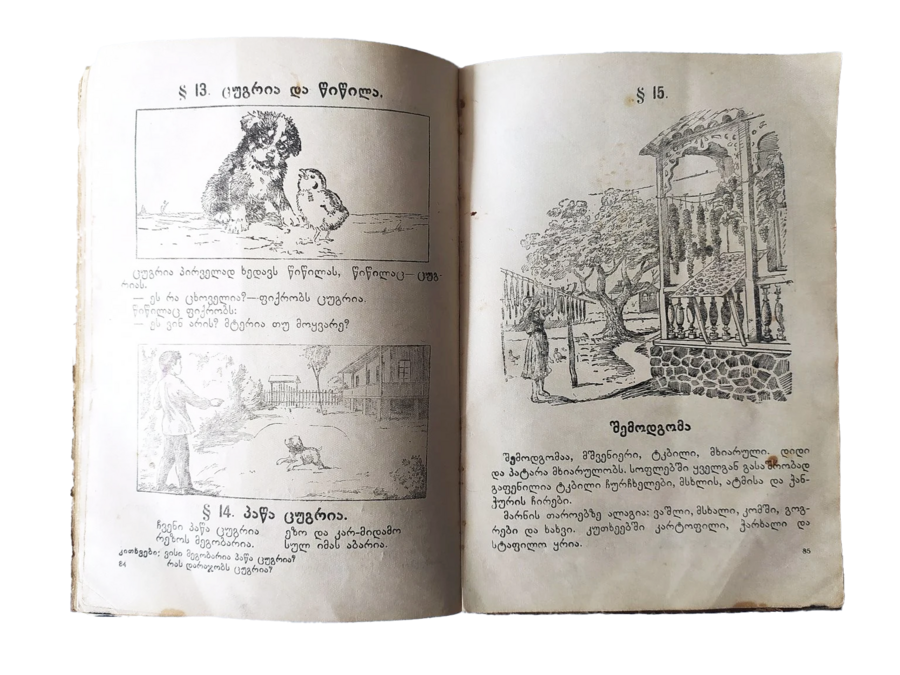 § 13. ცუგრია და წიწილა.
ცუგრია პირველად ხედავს წიწილას, წიწილაც— ცუგ-
რიას.
— ეს რა ცხოველია?—ფიქრობს ცუგრია.
წიწილაც ფიქრობს:
— ეს ვინ არის? მტერია თუ მოყვარე?
§ 14. პაწა ცუგრია.
ჩვენი პაწა ცუგრია
რეზოს მეგობარია.
ეზო და კარ-მიდამო
სულ იმას აბარია.
კითხვები: ვისი მეგობარია პაწა ცუგრია?
რას დარაჯობს ცუგრია?
84
§ 15.
შემოდგომა
შემოდგომაა, მშვენიერი, ტკბილი, მხიარული. დიდი
და პატარა მხიარულობს. სოფლებში ყველგან გასაშრობად
გაფენილია ტკბილი ჩურჩხელები, მსხლის, ატმისა და ჭან-
ჭურის ჩირები.
მარნის თაროებზე ალაგია: ვაშლი, მსხალი, კომში, გოგ-
რები და ხახვი. კუთხეებში კარტოფილი, ჭარხალი და
სტაფილო ყრია.
85